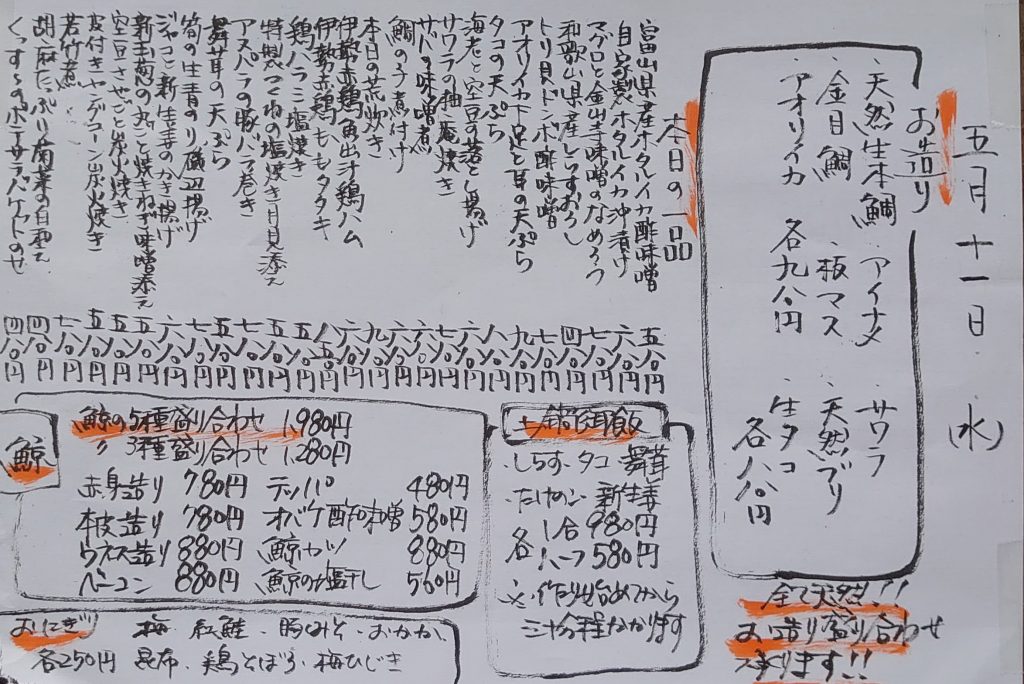 五月十一日(水)
お造り
・天然生本鯛 ・アイナメ ・サワラ
・金目鯛 ・板マス ・天然ブリ
・アオリイカ 各九八〇円 ・生タコ 各八八〇円
全て天然!!
お造り盛り合わせ
承ります!!
本日の一品
富山県産ホタルイカ酢味噌 五八〇円
自家製ホタルイカ沖漬け 六八〇円
マグロと金山寺味噌のなめろう 七八〇円
和歌山県産しらすおろし 四八〇円
トリ貝ドンボ酢味噌 七八〇円
アオリイカ下足と耳の天ぷら 九八〇円
タコの天ぷら 八八〇円
海老と空豆の落とし揚げ
サワラの柚庵焼き
サバの味噌煮
鯛の子煮付け
本日の荒炊き
伊勢赤鶏魚出汁鶏ハム
伊勢赤鶏ももタタキ
鶏ハラミ塩焼き
特製つくねの塩焼き月見添え
アスパラの豚バラ巻き
舞茸の天ぷら
筍の生青のり磯辺揚げ
ジャコと新生姜のかき揚げ
新玉葱の丸ごと焼きねぎ味噌添え
空豆さやごと炭火焼き
皮付きヤングコーン炭火焼き 七八〇円
若竹煮
胡麻たっぷり菊菜の白和え 四八〇円
くっすんのポテサラバケットのせ 四八〇円
土鍋御飯
・しらす・タコ・舞茸
・たけのこ・新生姜
各 1合 980円
ハーフ 580円
※作り始めてから
三十分程かかります
鯨
鯨の5種盛り合わせ 1,980円
〃 3種盛り合わせ 1,280円
赤身造り 780円 テッパ 480円
本皮造り 780円 オバケ酢味噌 580円
ウネス造り 880円 鯨カツ 880円
ベーコン 880円 鯨の塩干し 560円
おにぎり 梅・紅鮭・豚みそ・おかか、
各250円 昆布・鶏そぼろ・梅ひじき